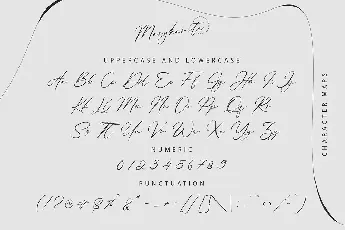 UPPERCASE AND LOWERCASE
Aa Bb Cc Dd Ee Ff Gg Hh Ii Jj
Kk Ll Mm Nn Oo Pp Qq Rr
Ss Tt Uu Vv Ww Xx Yy Zz
NUMERIC
0 1 2 3 4 5 6 7 8 9
PUNCTUATION
CHARACTER MAPS